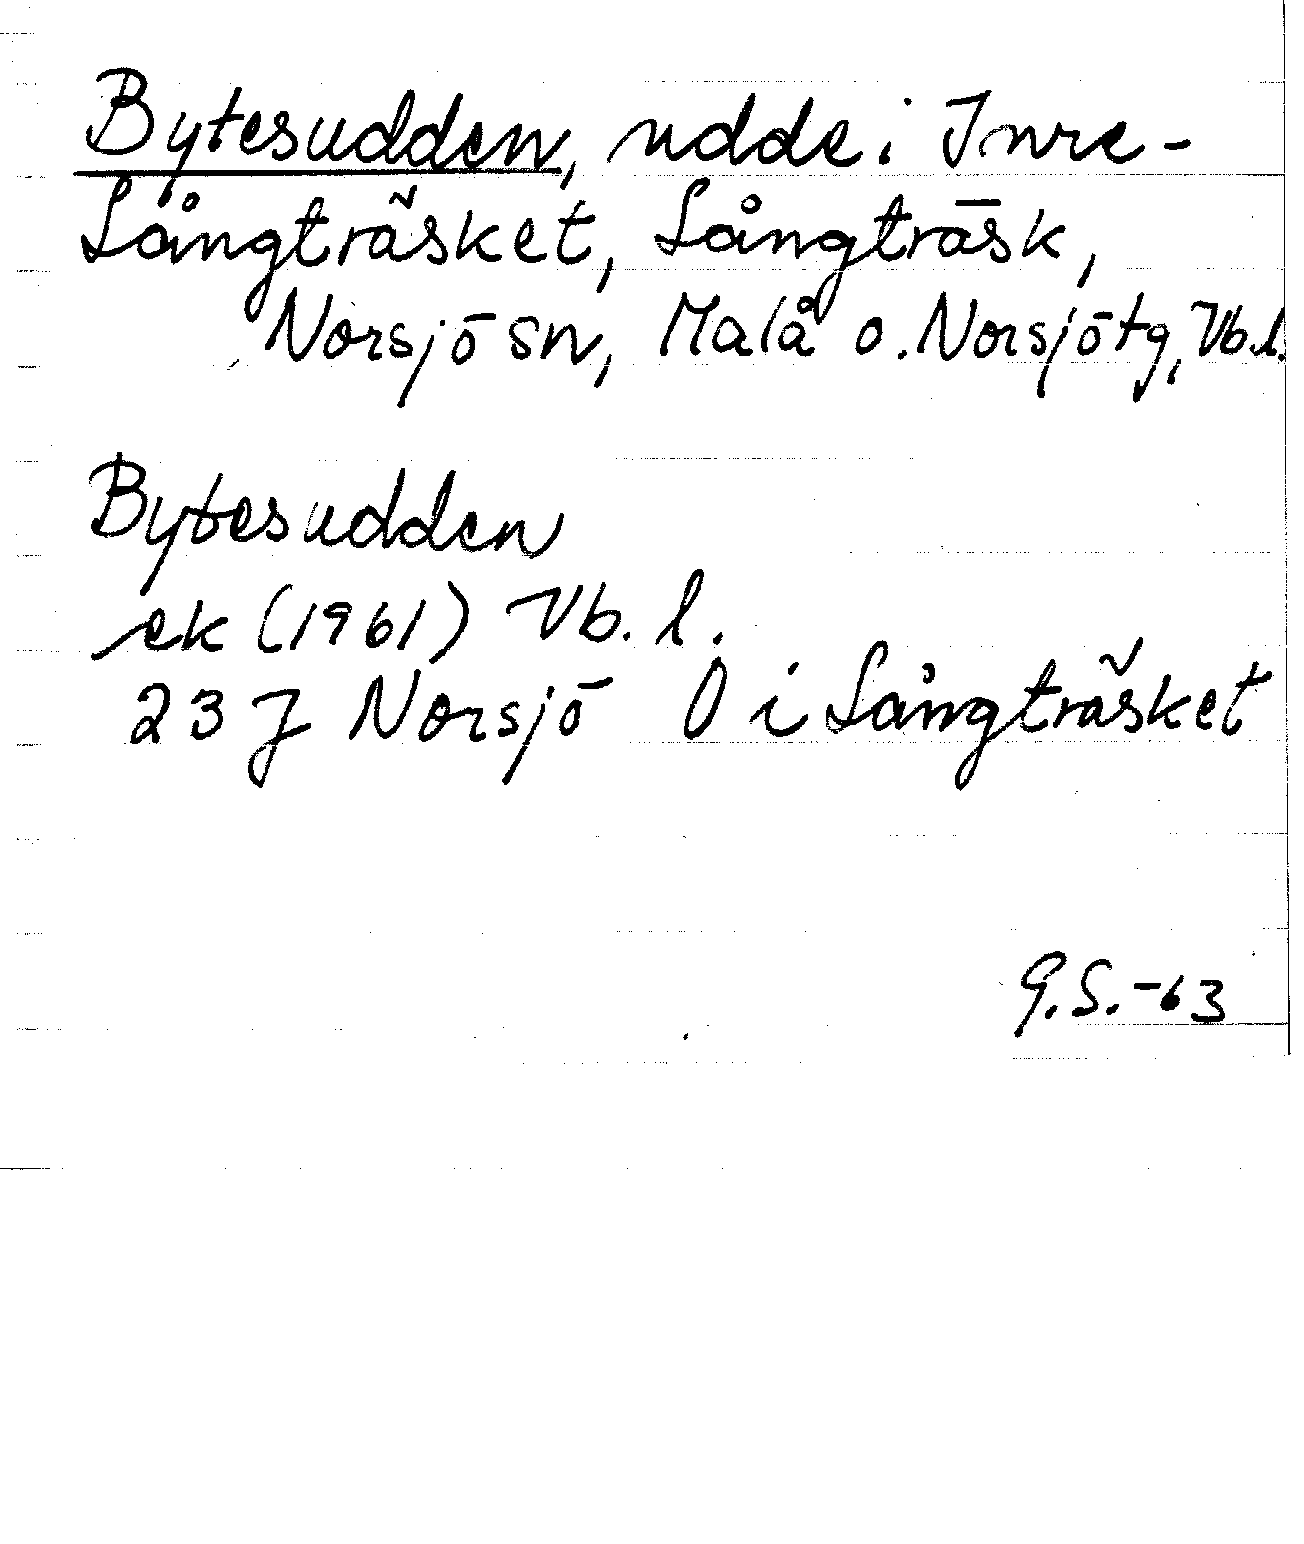 Bytesudden, udde i Inre-
Långträsket, Långträsk,
Norsjö sn, Malå o. Norsjö tg, Vb. l.
Bytesudden
ek (1961) Vb. l.
23 J Norsjö O i Långträsket
G.S.-63